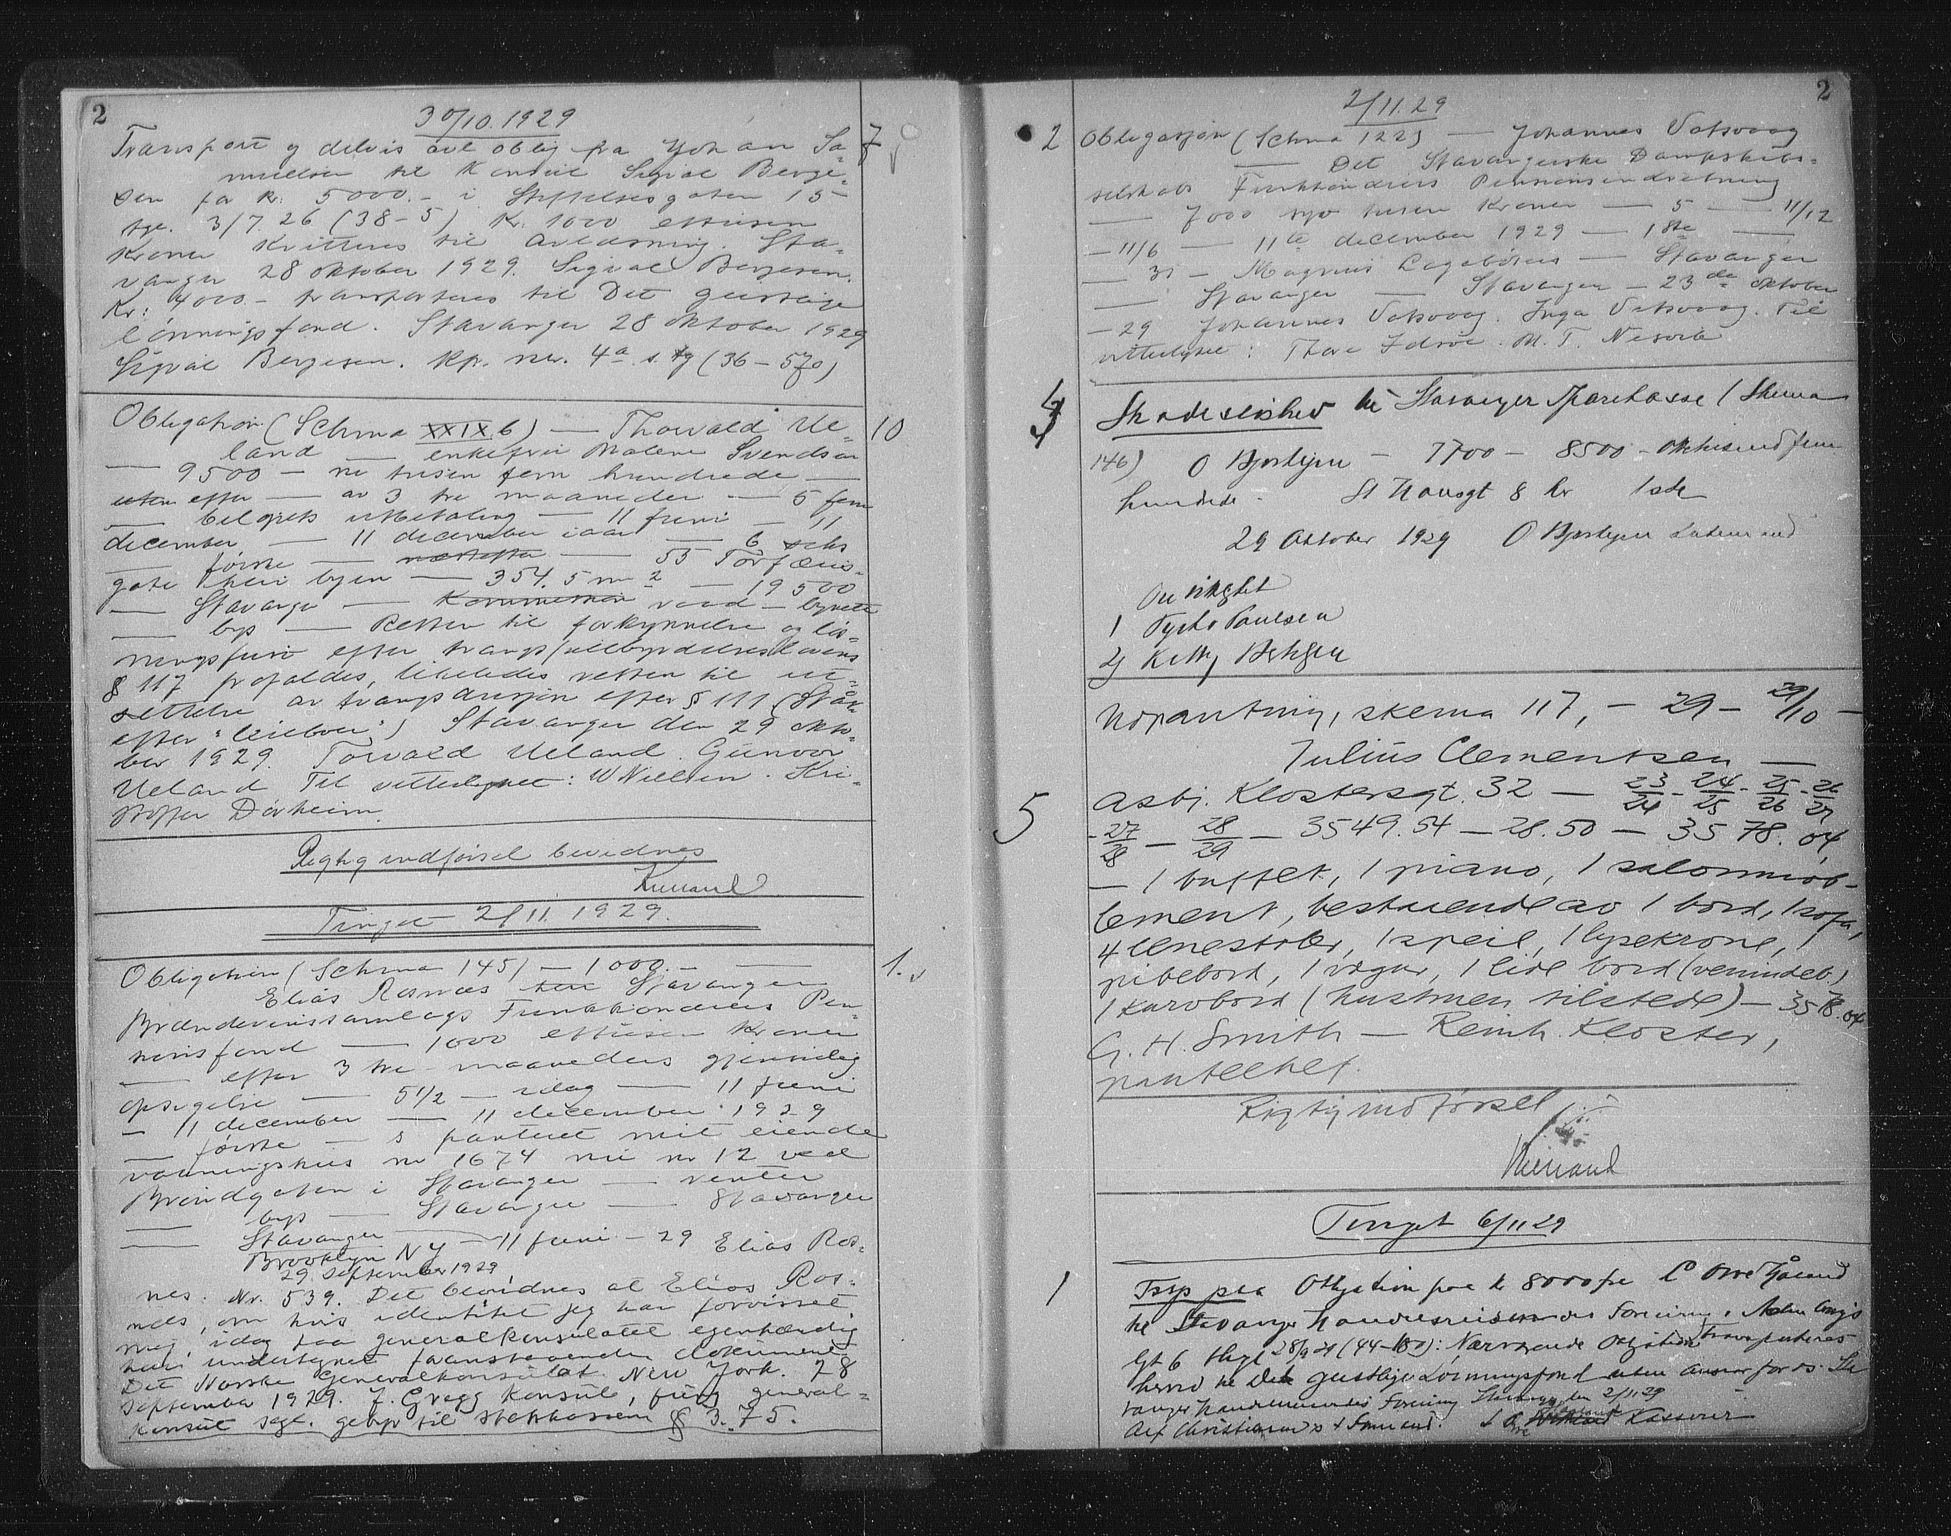 2
30/10.1929
Transport og delvis avl. oblig fra Johan Sa-
muelsen til Konsul Sigval Berge-
sen for kr. 5000.- i Stiftelsesgaten 15
tgl. 3/7.26 (38-5) Kr. 1000 ettusen
Kroner kvitteres til avlæsning. Sta-
vanger 28 oktober 1929. Sigval Bergesen.
Kr: 4000.- transporteres til Det geistlige
lønningsfond. Stavanger 28 oktober 1929
Sigval Bergesen. Kp. 4a (36-570)
7
Obligation (Schma XXIX 6) — Thorvald Ue-
land — enkefru Malene Svendsen
— 9500 — ni tusen fem hundrede —
uten efter — av 3 tre maaneder — 5 fem
— beløpets utbetaling — 11 juni — 11
december — 11 december iaar — 6 seks
— første — næstefter — 55
gate her i byen — 354.5 m2 — 19500
— Stavanger — Kommission raad — byrett
— by — Retten til forkyndelse og løs-
ningsfrist efter tvangsfuldbyrdelseslovens
§ 117 frafaldes, likeledes retten til ut-
settelse av tvangsauksjon efter § 111
efter "leiebær") Stavanger den 29 okto-
ber 1929. Torvald Ueland. Gunvor
Ueland Til vitterlighet: W Nielsen. Kri-
stoffer Dørheim.
10
Rigtig indførsel bevidnes
Kielland
Tinget 2/11.1929.
Obligation (Schma 145) — 1000.- —
Elias Rosnæs til Stavanger
Brændevinssamlags Funktionærers Pen-
sionsfond — 1000 ettusen Kroner
— efter 3 tre maaneders gjensidig
opsigelse — 5 1/2 — idag — 11 juni
— 11 december — 11 december 1929
— første — s panteret mit eiende
vaaningshus nr 1674 nu nr 12 ved
i Stavanger — renter
— by — Stavanger — Stavanger
— Stavanger — 11 juni — 29 Elias Ros-
Brooklyn NY
29. september 1929
nes. Nr. 539. Det bevidnes at Elias Ros-
næs, om hvis identitet jeg har forvisset
mig, idag paa generalkonsulatet egenhændig
har undertegnet foranstaaende dokument
Det Norske Generalkonsulat New York. 28
september 1929. J. Gregg Konsul, fung general-
konsul segl. gebyr til statskassen $ 3.75.
1.
2
2/11.29
2 Obligasjon (Schma 122) — Johannes Vatsvaag
— Det Stavangerske Dampskibs-
selskabs Funktionærers Pensionsindretning
— 7000 syv tusen Kroner — 5 — 11/12
— 11/6 — 11te december 1929 — 1ste —
— 31 — Magnus Lagabøters — Stavanger
— Stavanger — Stavanger — 23de oktober
— 29 Johannes Vatsvaag. Inga Vatsvaag. Til
vitterlighet: Thore Idsøe. M. T. Nesvik
4
Skadesløsbrev til Stavanger Sparekasse (Skema
146) O Bjorheim — 7700 — 8500 — ottetusind fem
hundrede — St Hansgt 8 kr 1ste
29 oktober 1929 O Bjorheim
1 Tycho Paulsen
2) Ketty
5
Utpantning, skema 117, — 29 — 29/10 —
Julius Clementsen —
Asbj. Klostersgt. 32 — 23/24 - 24/25 - 25/26 - 26/27
- 27/28 — 28/29 — 3549.54 — 28.50 — 3578.04,
— 1 buffet, 1 piano, 1 salonmøb-
lement, bestaaende av 1 bord, 1 sofa,
4 lenestoler, 1 speil, 1 lysekrone, 1
pibebord, 1 vægur, 1 lite bord (
1 kurvbord (hustruen tilstede) — 3578.04
G. H. Smith — Reinh. Kloster,
pantechef.
Rigtig indførsel
Kielland
Tinget 6/11 29
1
Trsp paa Obligation paa kr 8000 fra
til Stavanger Handelsreisendes Forening i
gt 6 tingl 28/9 21 (44-180): Nærværende Obligation transporteres
herved til Det geistlige Lønningsfond uten ansvar for os. Sta
vanger Handelsreisendes Forening Stavanger den 2/11 29
Alf Christiansen Kasserer